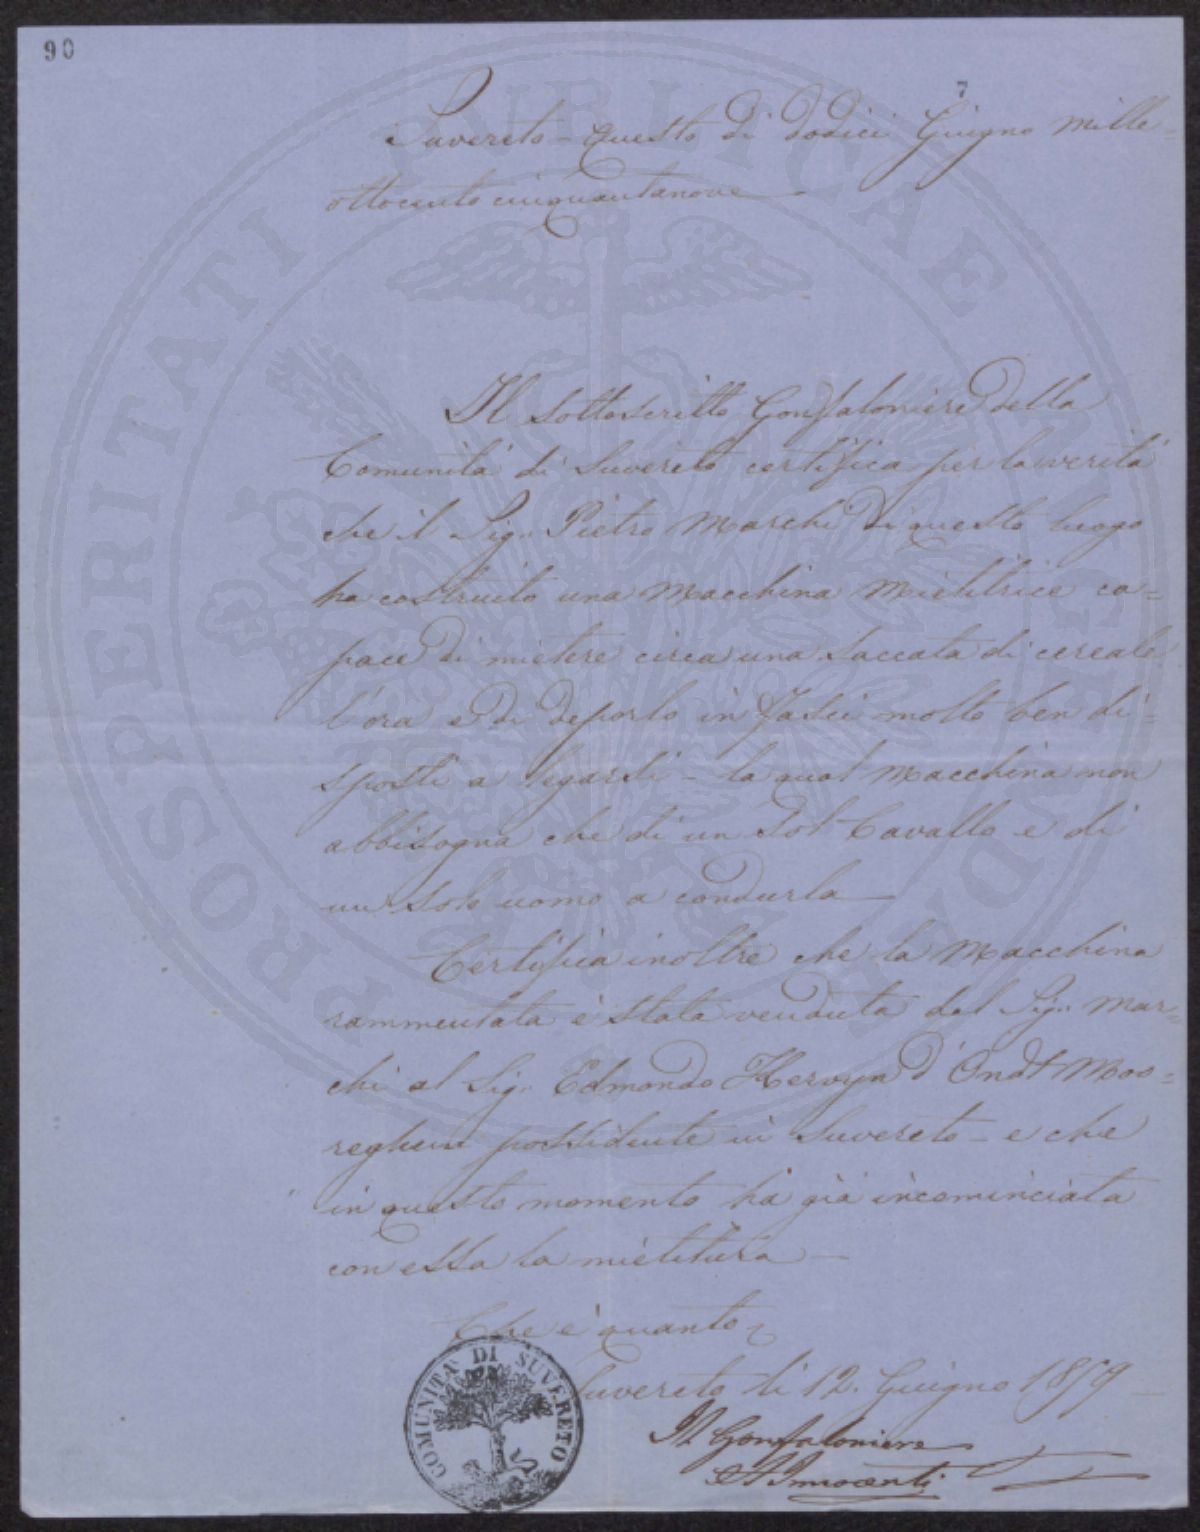 90
7
Suvereto - Questo di dodici Giugno mille=
ottocento cinquantanove
Il sottoscritto Gonfaloniere della
Comunità di Suvereto certifica per la verità
che il Sig. Pietro Marchi di questo luogo
ha costruito una Macchina Mietitrice ca=
pace di mietere circa una saccata di cereale
l'ora e di deporlo in fasci molto ben di=
sposti a legarsi - la qual Macchina non
abbisogna che di un sol Cavallo e di
un solo uomo a condurla
Certifica inoltre che la Macchina
rammentata è stata venduta dal Sig. Mar=
chi al Sig. Edmondo Kervyn d'Ondt Moo=
reghem possidente in Suvereto - e che
in questo momento ha già incominciata
con essa la mietitura
Che è quanto
Suvereto li 12. Giugno 1859
Il Gonfaloniere
Innocenti
COMUNITA' DI SUVERETO
PROSPERITATI PUBLICAE AUGENDAE